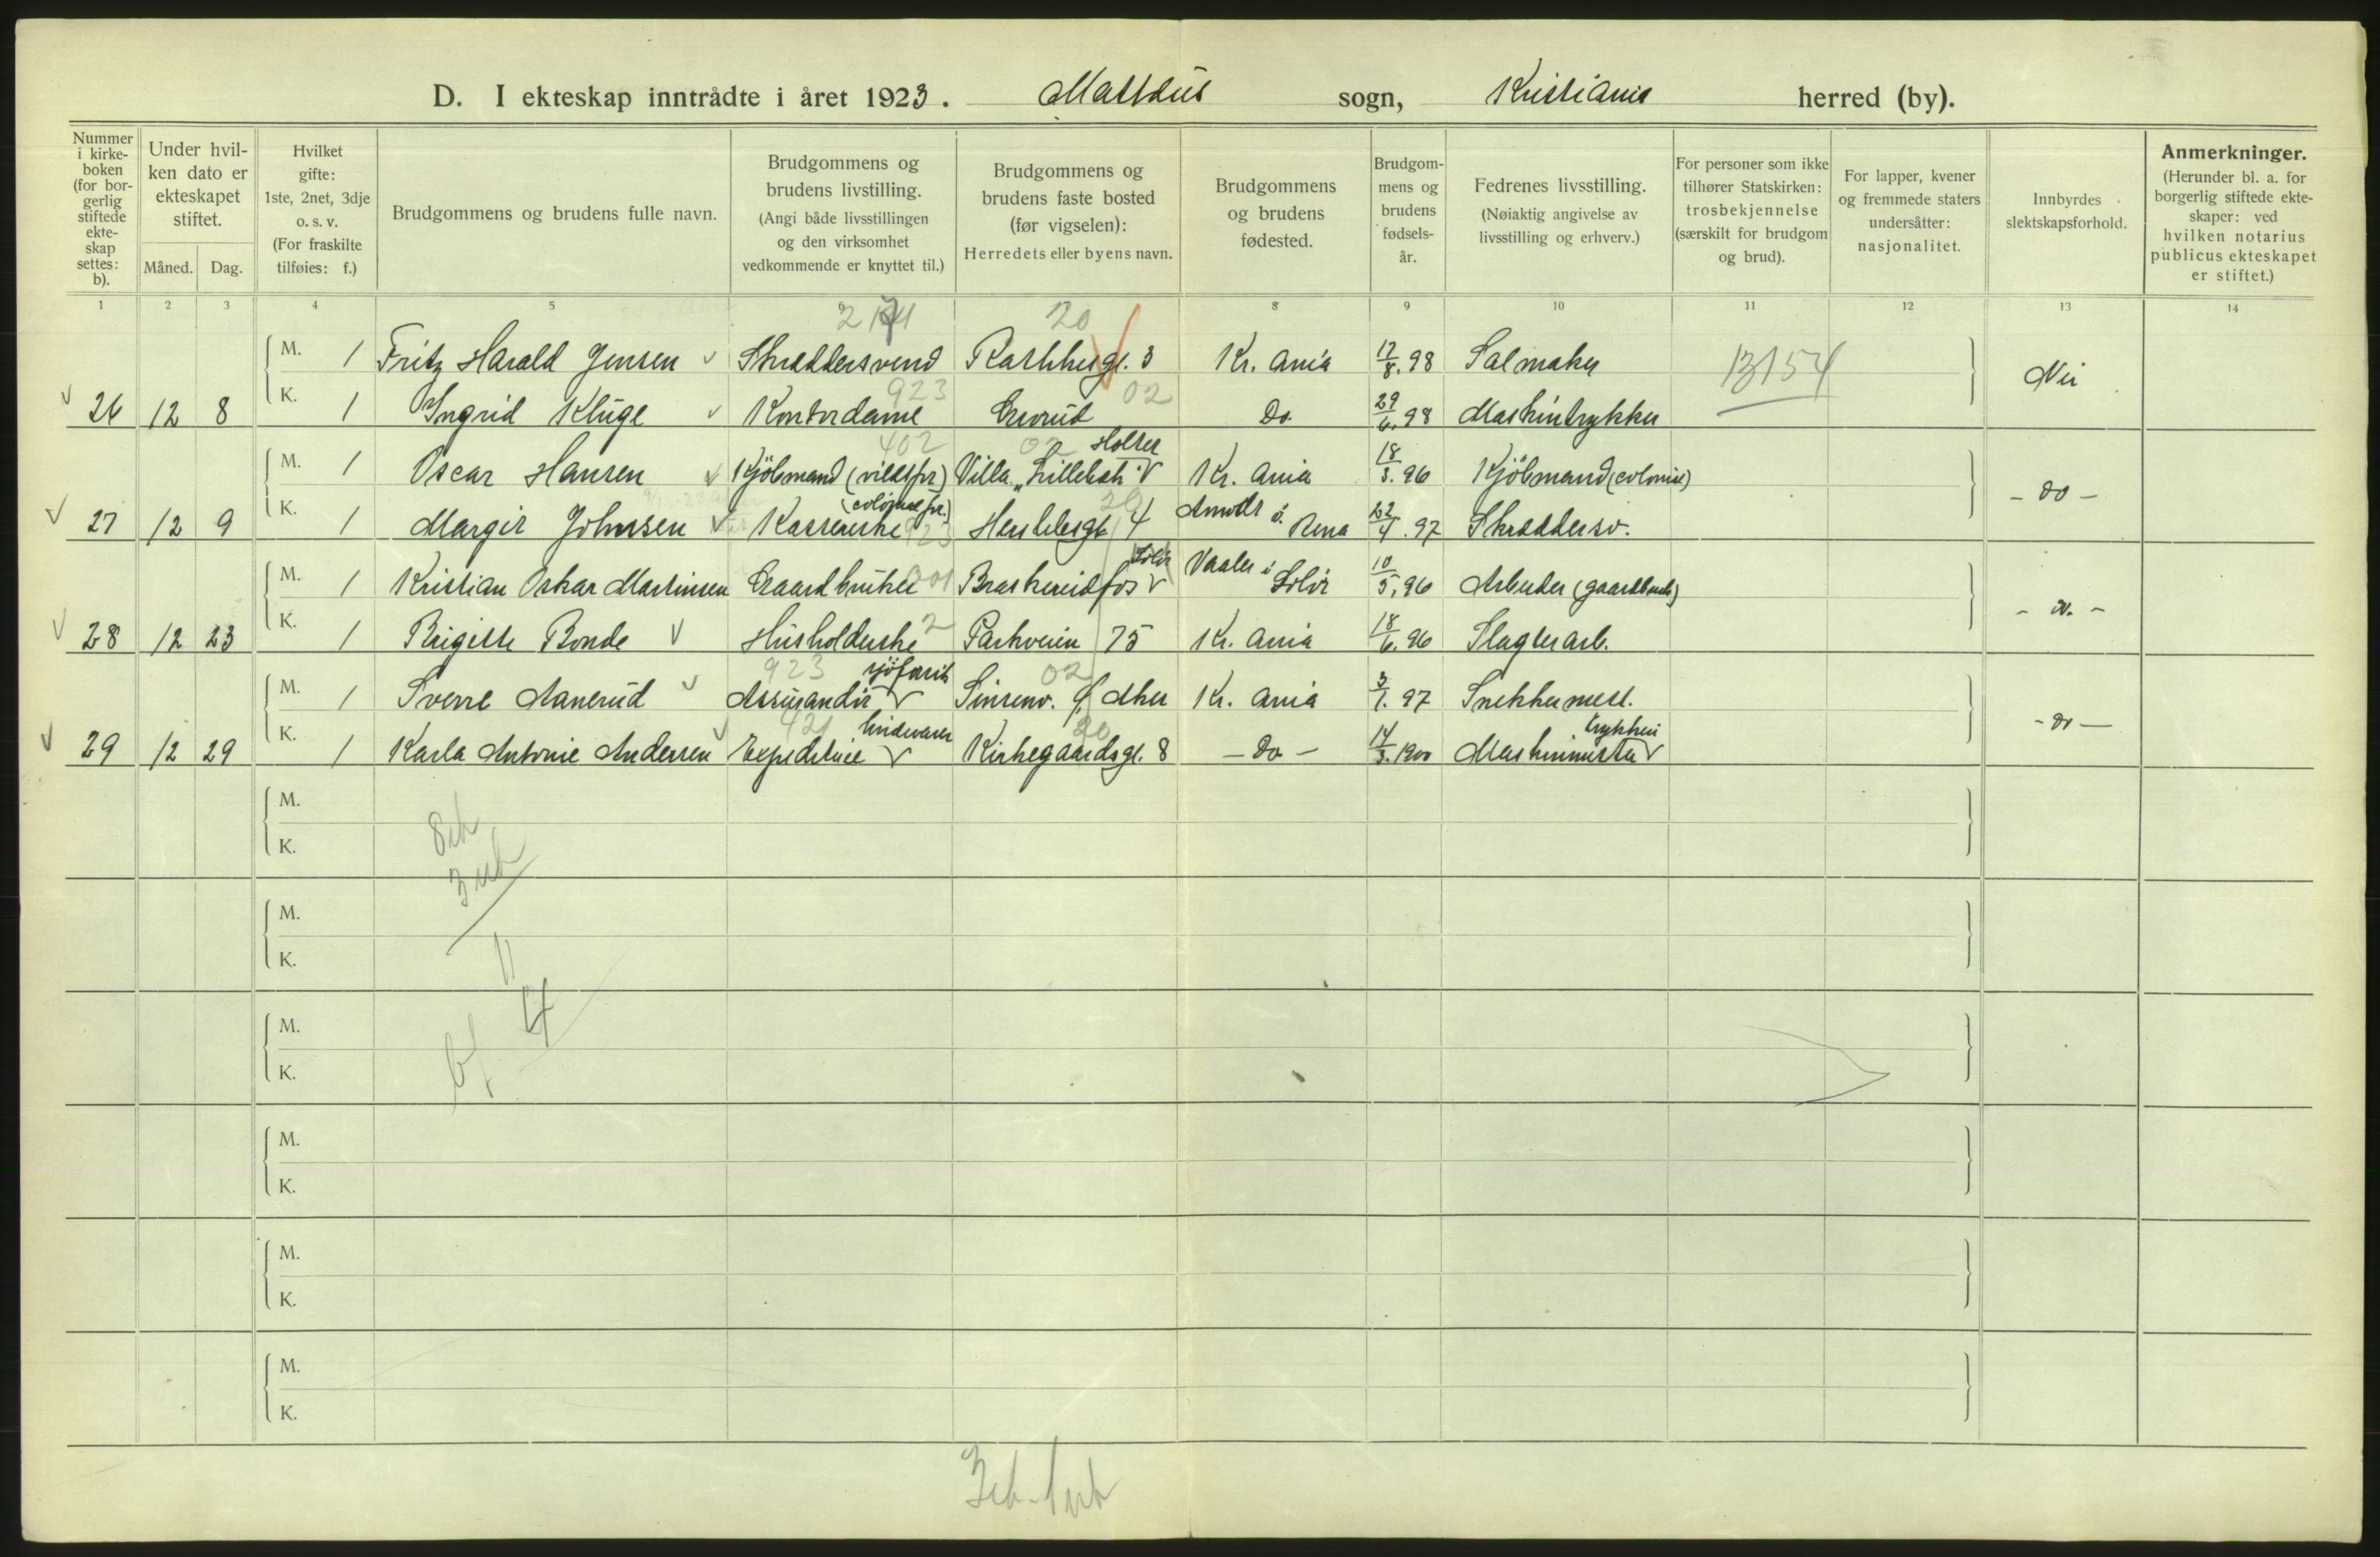 D. I ekteskap inntrådte i året 1923. Mattæus sogn, Kristiania herred (by).
Nummer i kirke-boken (for bor-gerlig stiftede ekte-skap settes: b).
Under hvil-ken dato er ekteskapet stiftet.
Måned. Dag.
Hvilket gifte: 1ste, 2net, 3dje o. s. v. (For fraskilte tilføies: f.)
Brudgommens og brudens fulle navn.
Brudgommens og brudens livstilling. (Angi både livsstillingen og den virksomhet vedkommende er knyttet til.)
Brudgommens og brudens faste bosted (før vigselen): Herredets eller byens navn.
Brudgommens og brudens fødested.
Brudgom-mens og brudens fødsels-år.
Fedrenes livsstilling. (Nøiaktig angivelse av livsstilling og erhverv.)
For personer som ikke tilhører Statskirken: trosbekjennelse (særskilt for brudgom og brud).
For lapper, kvener og fremmede staters undersåtter: nasjonalitet.
Innbyrdes slektskapsforhold.
Anmerkninger. (Herunder bl. a. for borgerlig stiftede ekte-skaper: ved hvilken notarius publicus ekteskapet er stiftet.)
1 2 3 4 5 8 9 10 11 12 13 14
20
M. 1 Fritz Harald Jensen Skreddersvend gt. 3 Kr. ania 12/8. 98 Salmaker 13154 Nei
923 02
26 12 8 K. 1 Ingrid Kluge Kontordame Do 29/6. 98 Maskintrykker
402 02 Holter
M. 1 Oscar Hansen Kjöbmand (vildtfor.) Villa "Lillebak" Kr. ania 18/3. 96 Kjöbmand (colonial) - do -
27 12 9 K. 1 Margit Johnsen Kassererske 923 Herslebsgt 4 Aamodt i Rena 22/4. 97 Skreddersv.
Solör
M. 1 Kristian Oskar Martinsen Gaardbruker 001 Braskereidfos Vaaler i Solör 10/5. 96 Arbeider (gaardbruk) - do. -
28 12 23 K. 1 Birgitte Bonde Husholderske 2 Parkveien 75 Kr. ania 18/6. 96 Slagterarb.
923 sjöforsik 02
M. 1 Sverre Aanerud Assurandör Sinsenv. 4, Aker Kr. ania 3/1. 97 Snekkermest. - do -
421 20 trykkeri
29 12 29 K. 1 Karla Antonie Andersen Expeditrice Kirkegaardsgt. 8 - Do - 14/3. 1900 Maskinmester
M.
K.
M.
K.
4
M.
K.
M.
K.
M.
K.
M.
K.